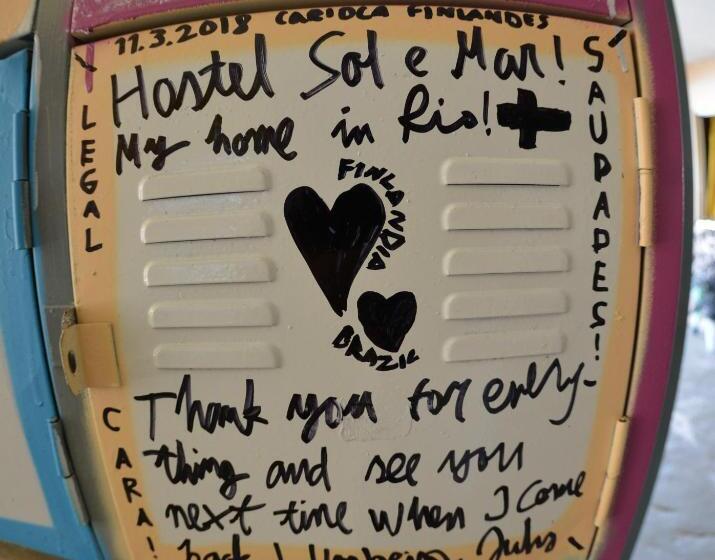 11.3.2018 CARIOCA FINLANDES
Hostel Sol e Mar!
My home in Rio!
FINLANDIA
BRAZIL
Thank you for every-
thing and see you
next time when I come
back!
LEGAL
CARA!
SAUDADES!